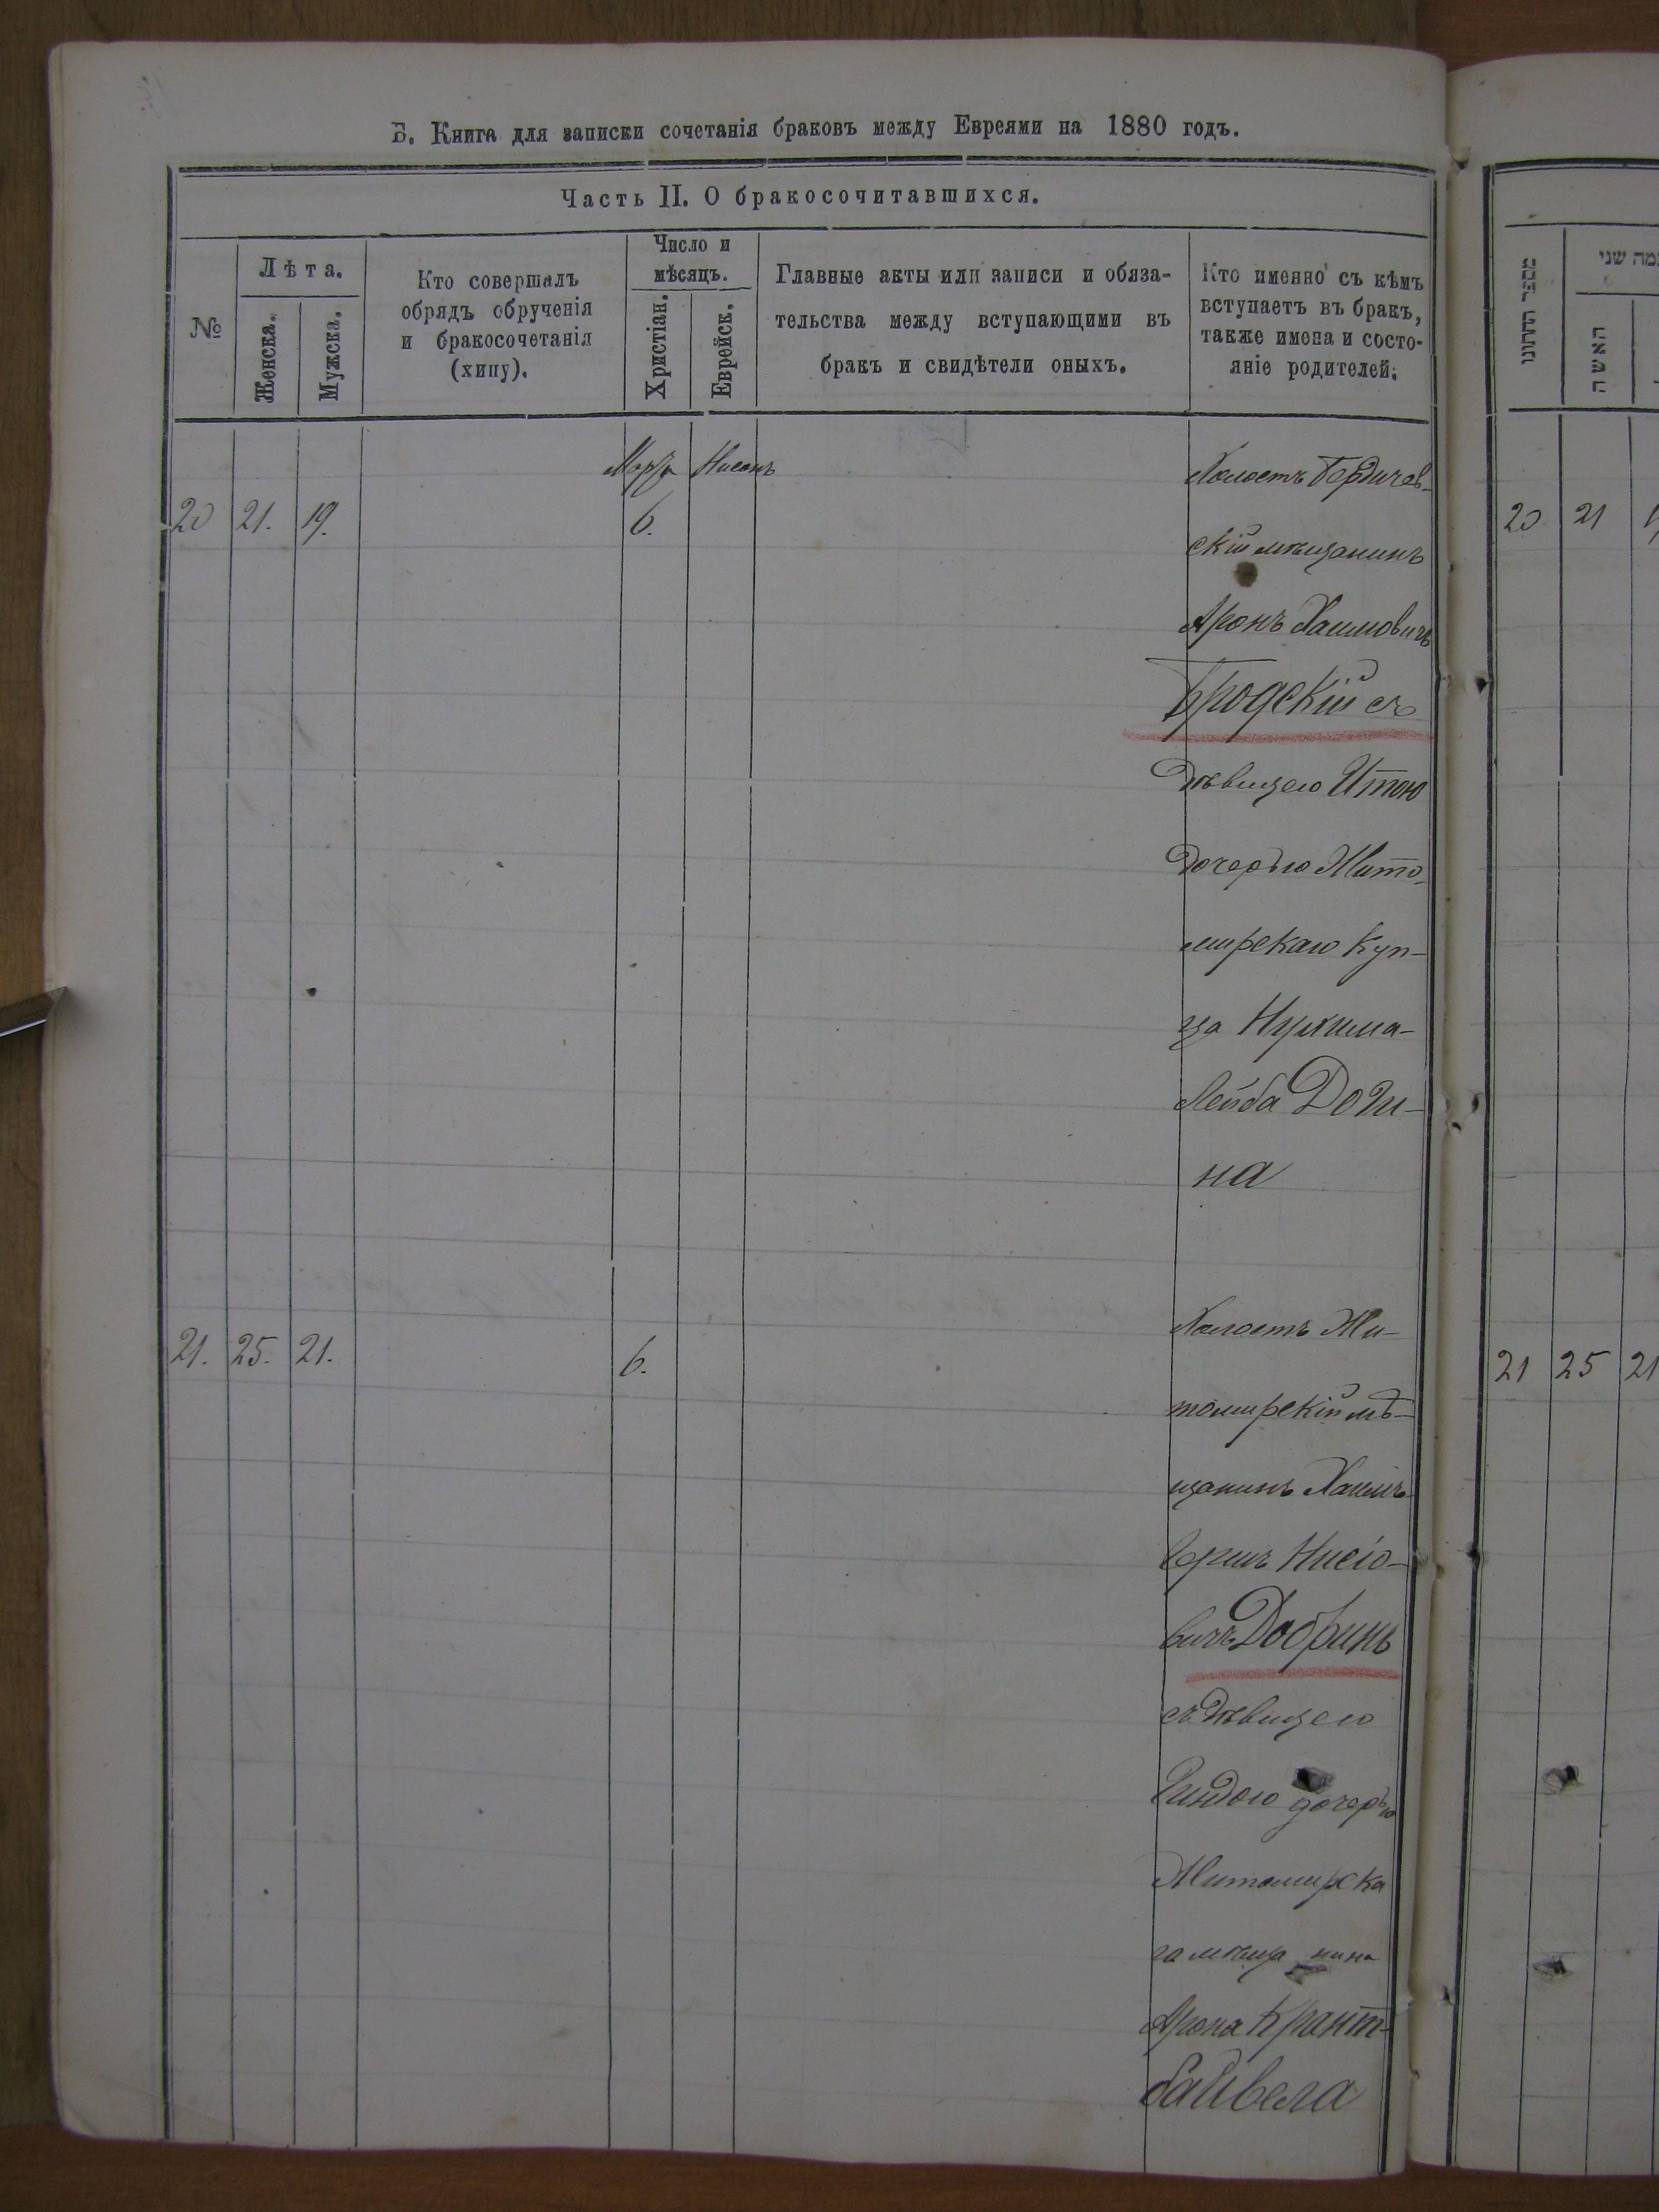 Б. Книга для записки сочетанія браковъ между Евреями на 1880 годъ.
Часть II. О бракосочитавшихся.
№
Лѣта.
Женска.
Мужска.
Кто совершалъ
обрядъ обрученія
и бракосочетанія
(хипу).
Число и
мѣсяцъ.
Христіан.
Еврейск.
Главные акты или записи и обяза-
тельства между вступающими въ
бракъ и свидѣтели оныхъ.
Кто именно съ кѣмъ
вступаетъ въ бракъ,
также имена и состо-
яніе родителей.
Марта Нисонъ
20 21. 19. 6.
Холостъ Бердичев-
скій мѣщанинъ
Аронъ Хаимовичъ
Бродскій съ
дѣвицею Итою
дочерью Жито-
мирскаго куп-
ца Нухима-
Лейба
на
21. 25. 21. 6.
Холостъ Жи-
томирскій мѣ-
щанинъ Хаимъ
Гершъ Нисіо-
вичъ Добринъ
съ дѣвицею
Гиндою дочерью
Житомирска
го мѣща нина
Арона Крант-
байвела
מספר החתונו
האשה
כמה שני
20 21
21 25 21